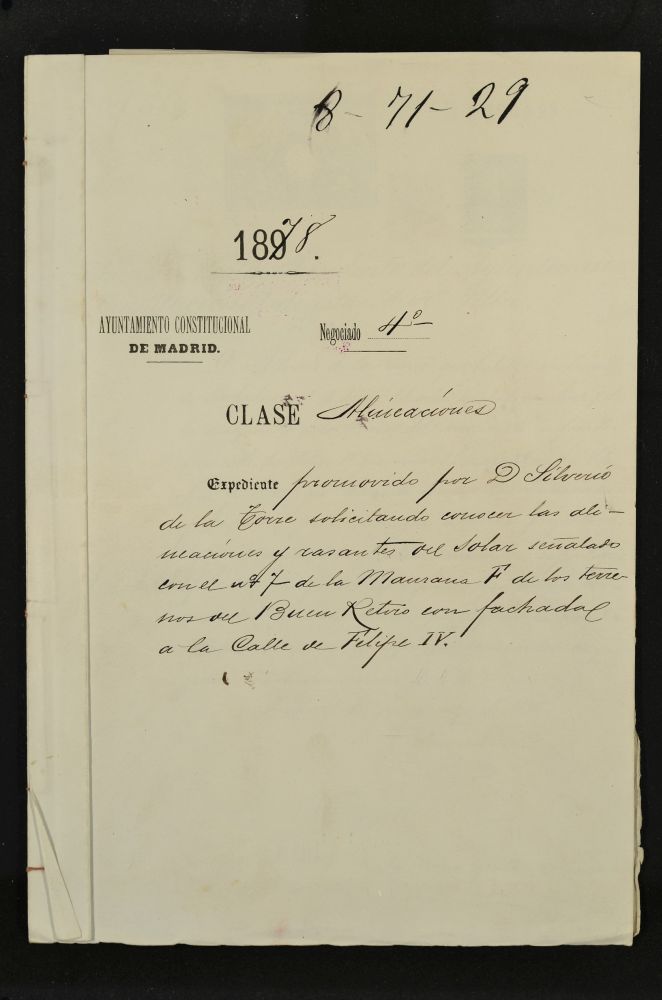 8-71-29
1878.
AYUNTAMIENTO CONSTITUCIONAL
DE MADRID.
Negociado 4º
CLASE Alineaciones
Expediente promovido por D Silverio
de la Torre solicitando conocer las ali-
neaciones y rasantes del Solar señalado
con el nº 7 de la Manzana F de los terre-
nos del Buen Retiro con fachada
a la Calle de Felipe IV.